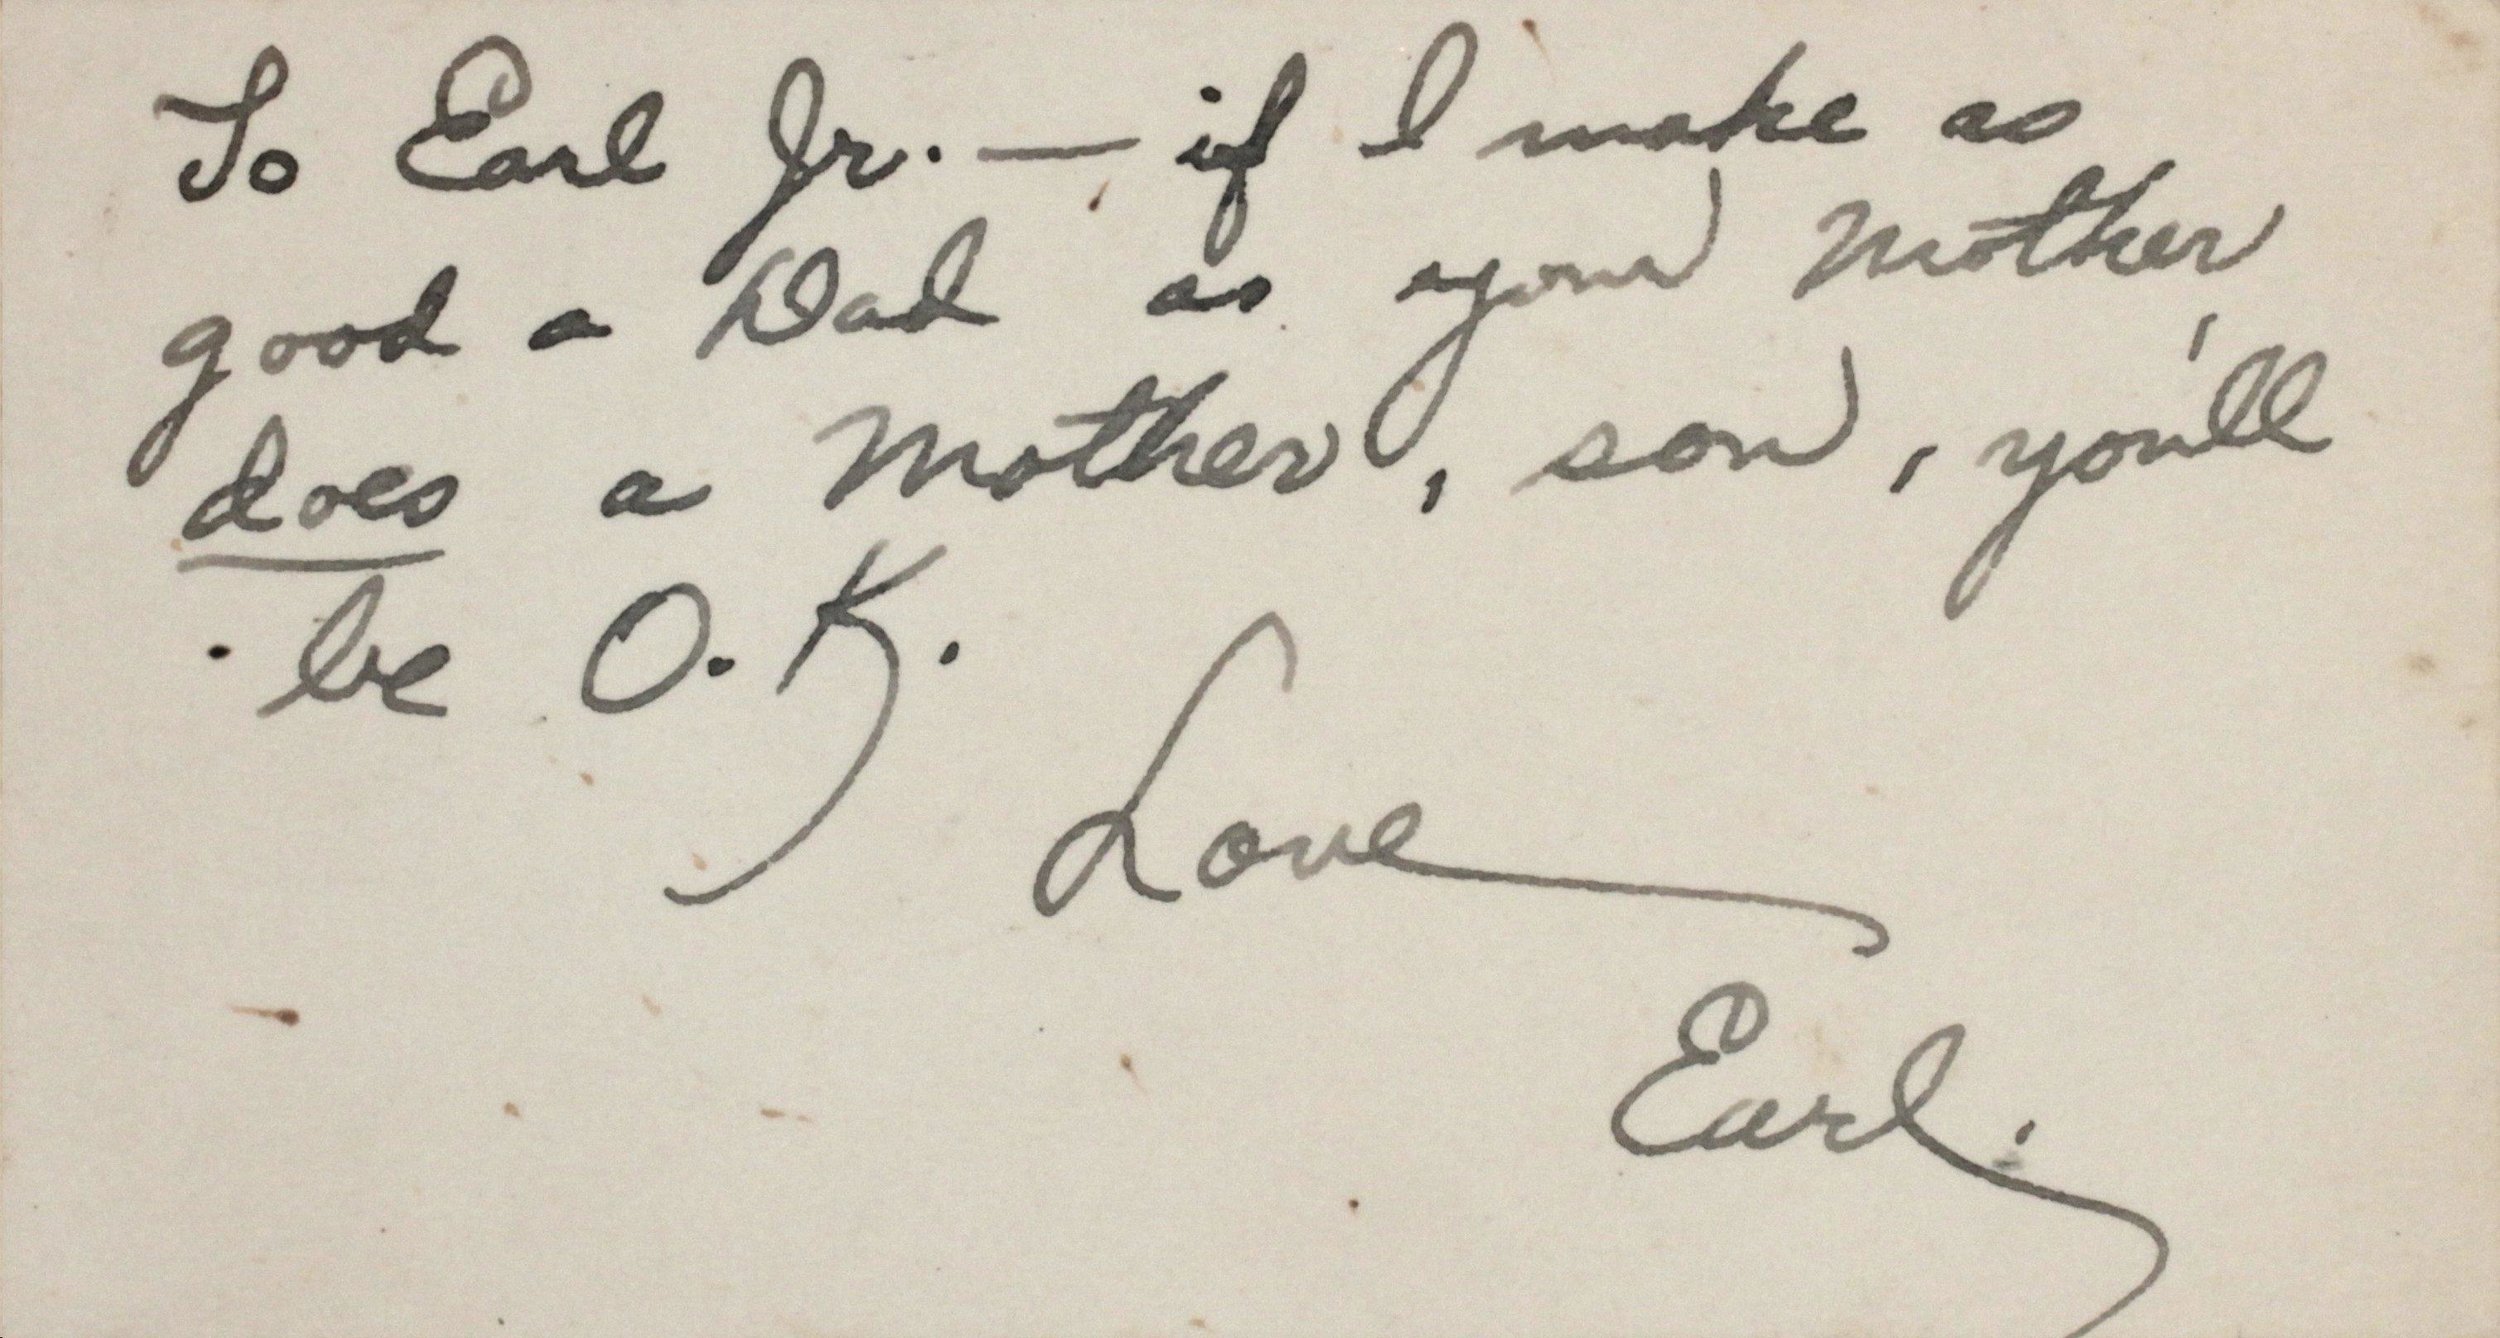 To Earl Jr. — if I make as
good a Dad as your Mother
does a Mother, son, you'll
be O.K.
Love
Earl.